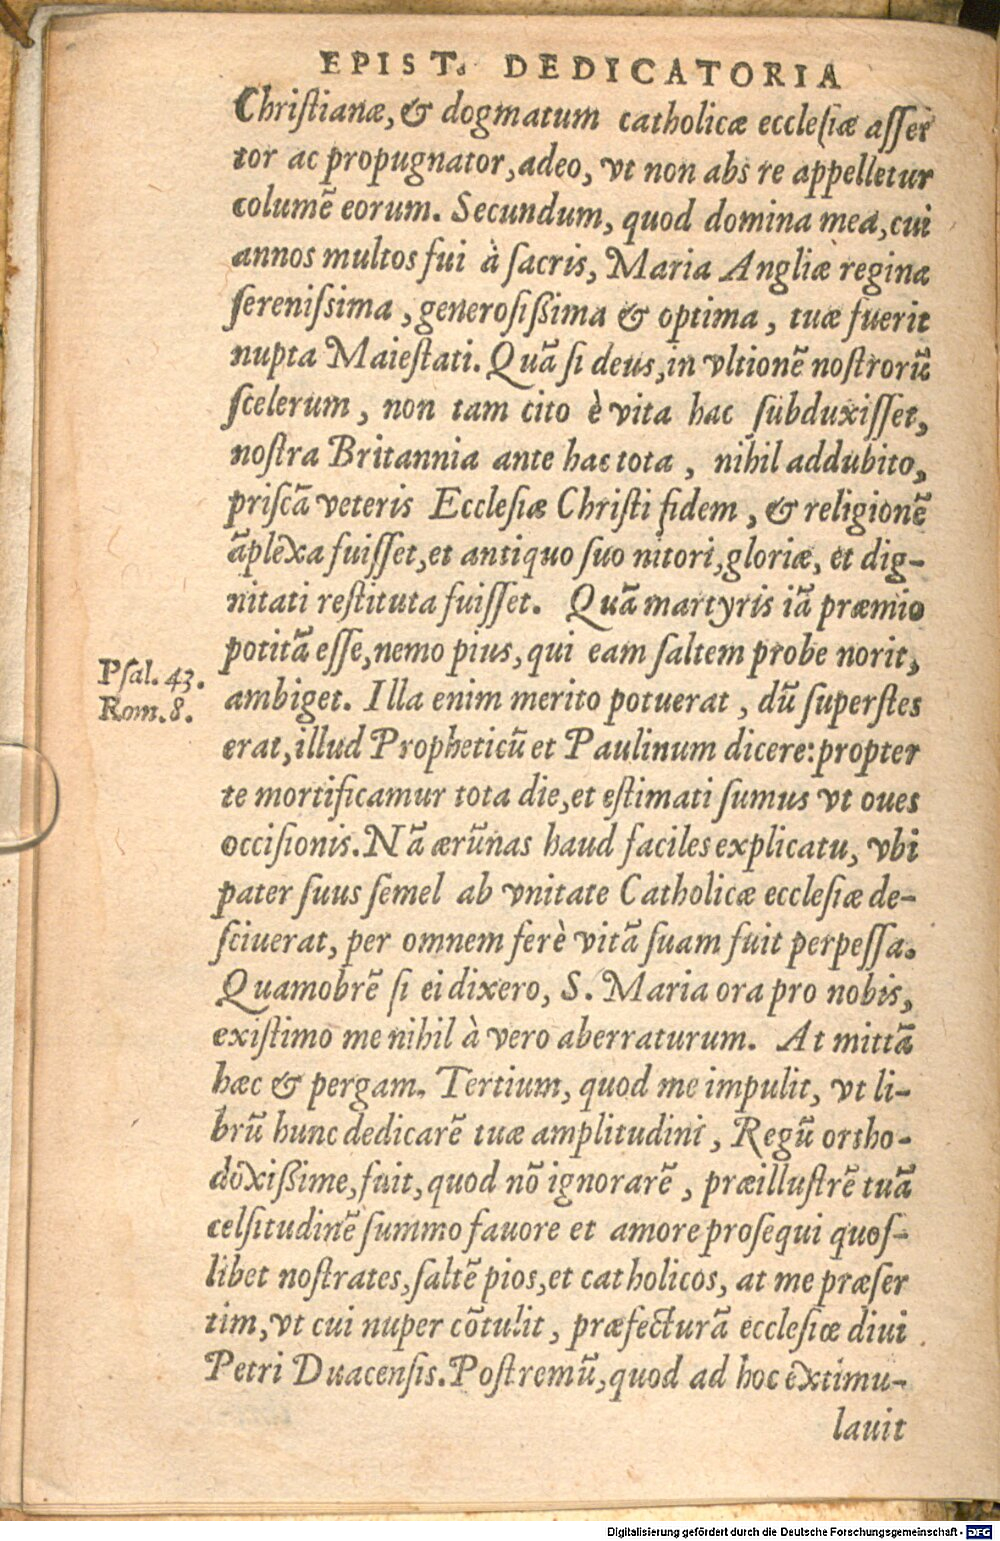 EPIST. DEDICATORIA
Chriſtianæ, & dogmatum catholicæ eccleſiæ aſſer
tor ac propugnator, adeo, vt non abs re appelletur
columẽ eorum. Secundum, quod domina mea, cui
annos multos fui à ſacris, Maria Angliæ regina
ſereniſsima, generoſiſsima & optima, tuæ fuerit
nupta Maieſtati. Quã ſi deus, in vltionẽ noſtrorũ
ſcelerum, non tam cito è vita hac ſubduxiſſet,
noſtra Britannia ante hac tota, nihil addubito,
priſcã veteris Eccleſiæ Chriſti fidem, & religionẽ
ãplexa fuiſſet, et antiquo ſuo nitori, gloriæ, et dig-
nitati reſtituta fuiſſet. Quã martyris iã præmio
potitã eſſe, nemo pius, qui eam ſaltem probe norit,
Pſal. 43.
Rom. 8.
ambiget. Illa enim merito potuerat, dũ ſuperſtes
erat, illud Propheticũ et Paulinum dicere: propter
te mortificamur tota die, et eſtimati ſumus vt oues
occiſionis. Nã ærũnas haud faciles explicatu, vbi
pater ſuus ſemel ab vnitate Catholicæ eccleſiæ de-
ſciuerat, per omnem ferè vitã ſuam fuit perpeſſa.
Quamobrẽ ſi ei dixero, S. Maria ora pro nobis,
exiſtimo me nihil à vero aberraturum. At mittã
hæc & pergam. Tertium, quod me impulit, vt li-
brũ hunc dedicarẽ tuæ amplitudini, Regũ ortho-
doxiſsime, fuit, quod nõ ignorarẽ, præilluſtrẽ tuã
celſitudinẽ ſummo fauore et amore proſequi quoſ-
libet noſtrates, ſaltẽ pios, et catholicos, at me præſer
tim, vt cui nuper cõtulit, præfecturã eccleſiæ diui
Petri Duacenſis. Poſtremũ, quod ad hoc extimu-
lauit
Digitalisierung gefördert durch die Deutsche Forschungsgemeinschaft - DFG